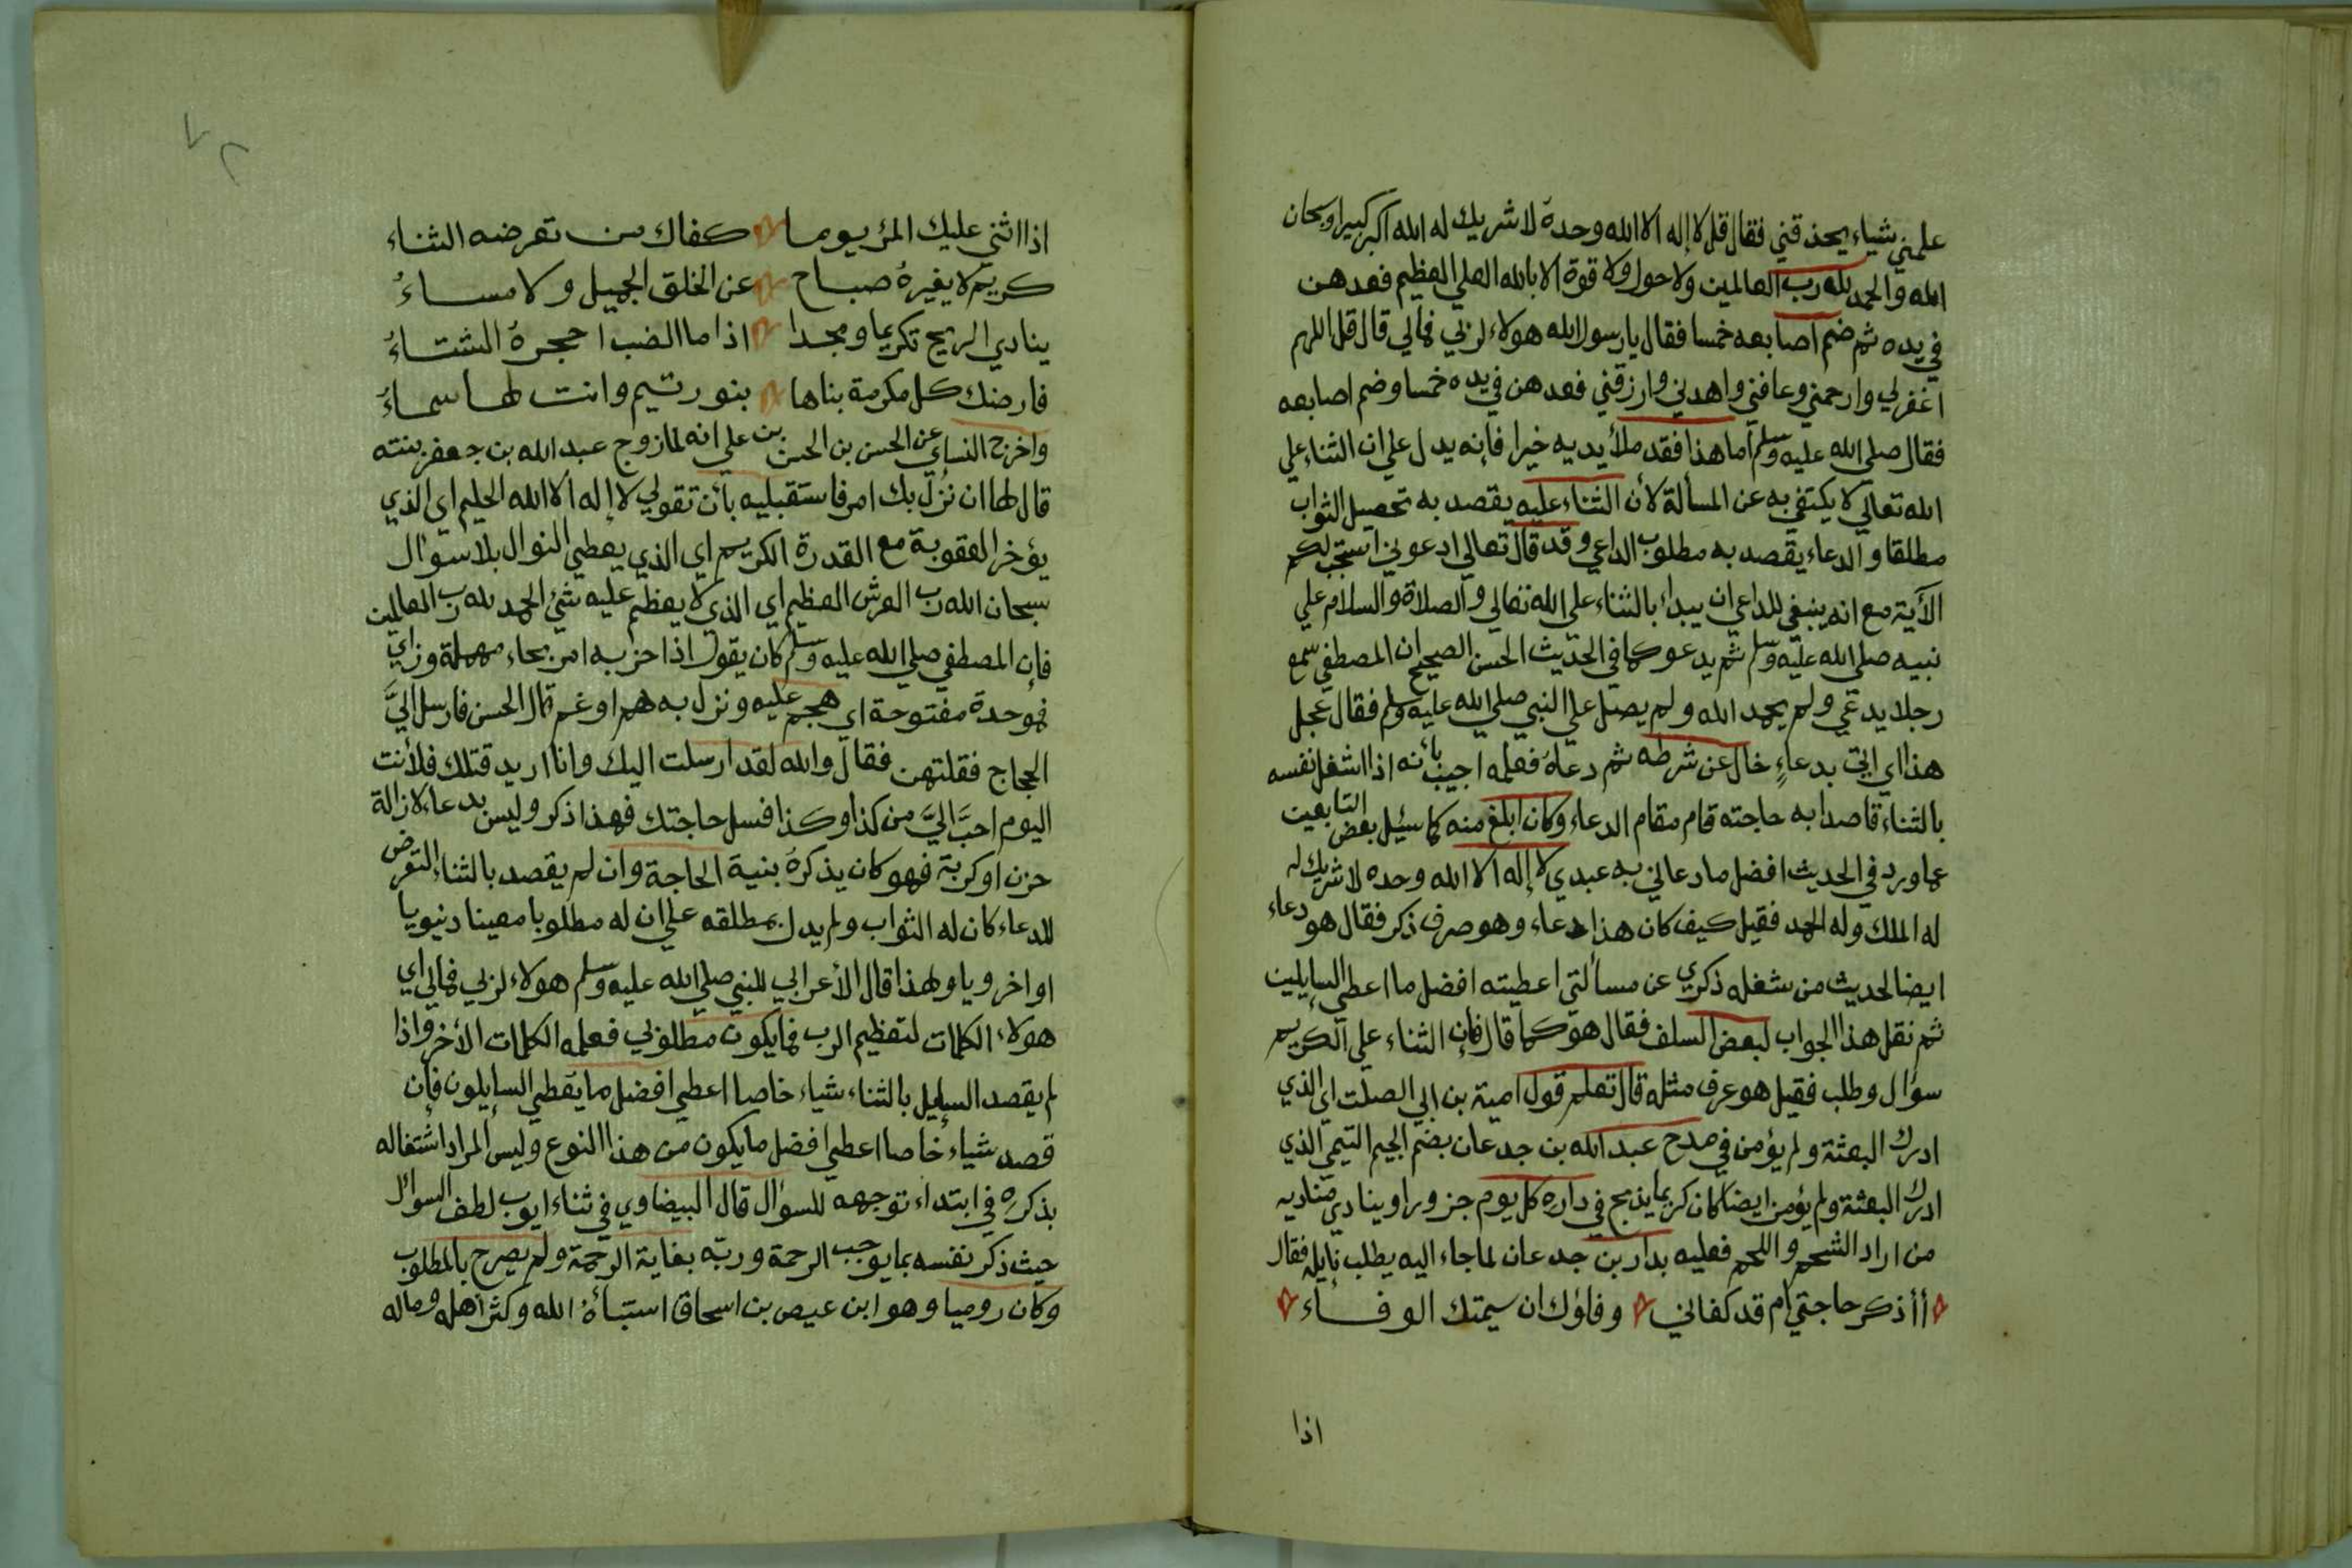 علمني شياء يحذقني فقال قل لا إله الا الله وحدة لا شريك له الله اكبر كبيرا وسبحان
الله والحمد لله رب العالمين ولا حول ولا قوة الا بالله العلي العظيم فعدهن
في يده ثم ضم اصابعه خمسا فقال يا رسول الله هولاء لربي فمالي قال قل اللهم
اغفرلي وارحمني وعافني واهدني وارزقني فعدهن في يده خمسا وضم اصابعه
فقال صلي الله عليه وسلم أما هذا فقد ملأ يديه خيرا فإنه يدل علي ان الثناء علي
الله تعالي لا يكتفي به عن المسألة لأن الثناء عليه يقصد به تحصيل الثواب
مطلقا والدعاء يقصد به مطلوب الداعي وقد قال تعالي ادعوني استجب لكم
الآية مع انه ينبغي للداعي ان يبداء بالثناء علي الله تعالي والصلاة والسلام علي
نبيه صلي الله عليه وسلم ثم يدعو كما في الحديث الحسن الصحيح ان المصطفي سمع
رجلا يدعي ولم يحمد الله ولم يصل علي النبي صلي الله عليه وسلم فقال عجل
هذا اي اتي بدعاءٍ خال عن شرطه ثم دعاه فعلمه اجيب بأنه اذا اشغل نفسه
بالثناء قاصدا به حاجته قام مقام الدعاء وكان ابلغ منه كما سئيل بعض التابعين
عما ورد في الحديث افضل ما دعاني به عبدي لا إله الا الله وحده لا شريك له
له الملك وله الحمد فقيل كيف كان هذا دعاء وهو صرف ذكر فقال هو دعاء
ايضا لحديث من شغله ذكري عن مسألتي اعطيته افضل ما اعطي السايلين
ثم نقل هذا الجواب لبعض السلف فقال هو كما قال فإن الثناء علي الكريم
سؤال وطلب فقيل هو عرف مثله قال تعلم قول امية بن ابي الصلت اي الذي
ادرك البعثة ولم يؤمن في مدح عبد الله بن جدعان بضم الجيم التيمي الذي
ادرك البعثة ولم يؤمن ايضا كان كريما يذبح في داره كل يوم جزورا وينادي مناديه
من اراد الشحم واللحم فعليه بدار بن جدعان لما جاء اليه يطلب نايله فقال
أأذكر حاجتي أم قد كفاني وفاؤك ان سيمتك الوفاء
اذا
اذا اثني عليك المرؤ يوما كفاك من تعرضه الثناء
كريم لا يغيره صباح عن الخلق الجميل ولا مساءُ
ينادي الريح تكريما ومجدا اذا ما الضب احجره الشتاءُ
فارضك كل مكرمة بناها بنو تيم وانت لها سماءُ
واخرج النساي عن الحسن بن الحسن بن علي انه لما زوج عبد الله بن جعفر بنته
قال لها ان نزل بك امر فاستقبليه بأن تقولي لا إله الا الله الحليم اي الذي
يؤخر العقوبة مع القدرة الكريم اي الذي يعطي النوال بلا سوال
سبحان الله رب العرش العظيم اي الذي لا يعظم عليه شئ الحمد لله رب العالمين
فإن المصطفي صلي الله عليه وسلم كان يقول اذا حزبه امر بحاء مهملة وزاي
فموحدة مفتوحة اي هجم عليه ونزل به هم او غم قال الحسن فارسل اليَّ
الحجاج فقلتهن فقال والله لقد ارسلت اليك وانا اريد قتلك فلأنت
اليوم احبَّ اليَّ من كذا وكذا فسل حاجتك فهذا ذكر وليس بدعاء لازالة
حزن او كربة فهو كان يذكره بنية الحاجة وان لم يقصد بالثناء التعرض
للدعاء كان له الثواب ولم يدل بمطلقه علي ان له مطلوبا معينا دنيويا
او اخرويا ولهذا قال الأعرابي للنبي صلي الله عليه وسلم هولاء لربي فمالي اي
هولاء الكلمات لتعظيم الرب فما يكون مطلوبي فعلمه الكلمات الأخر واذا
لم يقصد السايل بالثناء شياء خاصا اعطي افضل ما يعطي السايلون فإن
قصد شياء خاصا اعطي افضل ما يكون من هذا النوع وليس المراد اشتغاله
بذكره في ابتداء توجهه للسوال قال البيضاوي في ثناء ايوب لطف السوال
حيث ذكر نفسه بما يوجب الرحمة وربه بغاية الرحمة ولم يصرح بالمطلوب
وكان روميا وهو ابن عيص بن اسحاق استبأه الله وكثر أهله وماله